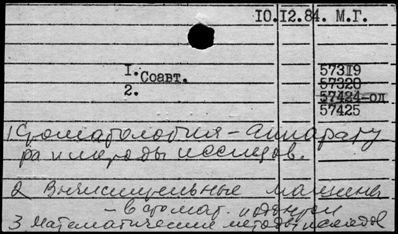 10.12.84. М.Г.
1. Соавт.
2.
57319
57320
57424-од
57425
1 Стоматология - аппарату
ра и методы исследов.
2 Вычислительные машины
- в стомат.
3 Математические методы исследов